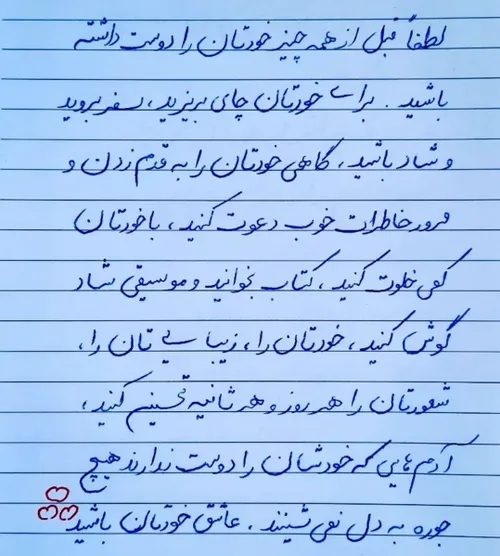 لطفاً قبل از همه چیز خودتان را دوست داشته
باشید. برای خودتان چای بریزید، سفر بروید
و شاد باشید، گاهی خودتان را به قدم زدن و
مرور خاطرات خوب دعوت کنید، با خودتان
کمی خلوت کنید، کتاب بخوانید و موسیقی شاد
گوش کنید، خودتان را، زیبایی تان را،
شعورتان را هر روز و هر ثانیه تحسین کنید،
آدم هایی که خودشان را دوست ندارند هیچ
جوره به دل نمی شینند. عاشق خودتان باشید